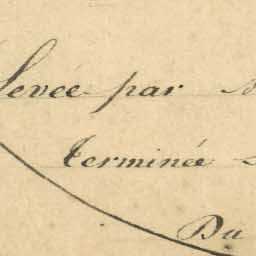 Levée par
terminée
Du